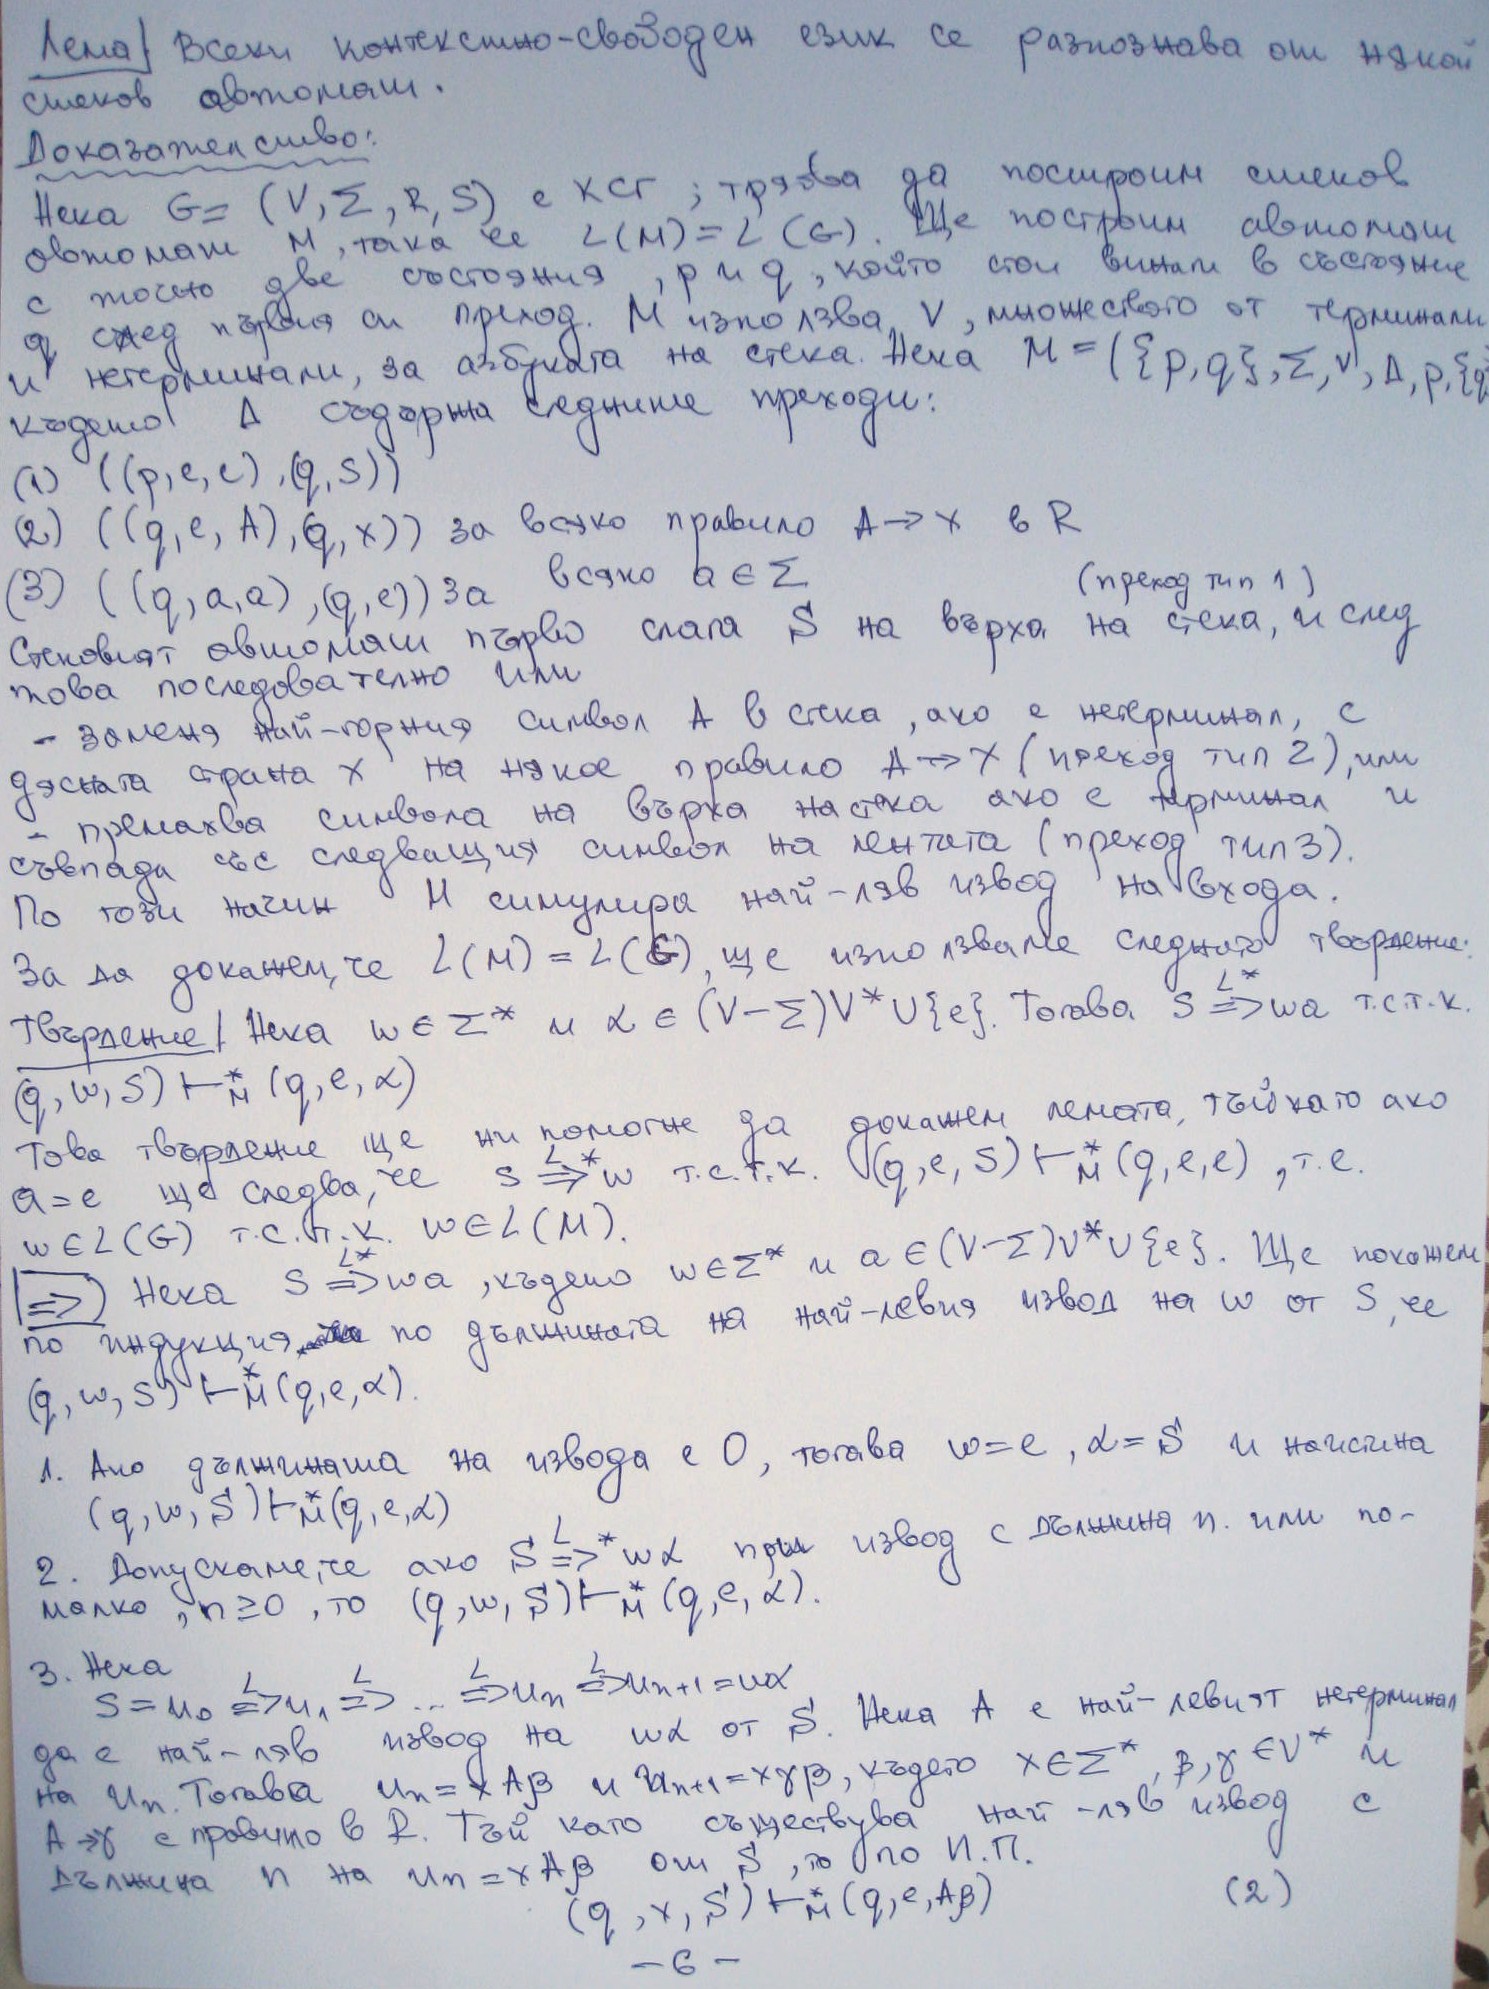 Лема/ Всеки контекстно-свободен език се разпознава от някой
стеков автомат.
Доказателство:
Нека G = (V, Σ, R, S) е КСГ ; трябва да построим стеков
автомат M, така че L(M) = L(G). Ще построим автомат
с точно две състояния, p и q, който стои винаги в състояние
q след първия си преход. M използва V, множеството от терминали
и нетерминали, за азбуката на стека. Нека M = ({p,q}, Σ, V, Δ, p, {q}
където Δ съдържа следните преходи:
(1) ((p,e,e),(q,S))
(2) ((q,e,A),(q,x)) за всяко правило A→x в R
(3) ((q,a,a),(q,e)) за всяко a∈Σ
(преход тип 1)
Стековият автомат първо слага S на върха на стека, и след
това последователно или
- заменя най-горния символ A в стека, ако е нетерминал, с
дясната страна x на някое правило A→x (преход тип 2), или
- премахва символа на върха на стека ако е терминал и
съвпада със следващия символ на лентата (преход тип 3).
По този начин M симулира най-ляв извод на входа.
За да докажем, че L(M) = L(G), ще използваме следното твърдение:
Твърдение/ Нека w∈Σ* и α∈(V-Σ)V*∪{e}. Тогава S L⇒* wa т.с.т.к.
(q,w,S) ⊢*M (q,e,α)
Това твърдение ще ни помогне да докажем лемата, тъй като ако
a=e ще следва, че S L⇒* w т.с.т.к. (q,e,S) ⊢*M (q,e,e), т.е.
w∈L(G) т.с.т.к. w∈L(M).
⇒) Нека S L⇒* wa, където w∈Σ* и a∈(V-Σ)V*∪{e}. Ще покажем
по индукция по дължината на най-левия извод на w от S, че
(q,w,S) ⊢*M (q,e,α).
1. Ако дължината на извода е 0, тогава w=e, α=S и наистина
(q,w,S) ⊢*M (q,e,α)
2. Допускаме, че ако S L⇒* wα при извод с дължина n или по-
малко, n≥0, то (q,w,S) ⊢*M (q,e,α).
3. Нека
S = u₀ L⇒ u₁ L⇒ ... L⇒ uₙ L⇒ uₙ₊₁ = wα
да е най-ляв извод на wα от S. Нека A е най-левият нетерминал
на uₙ. Тогава uₙ = xAβ и uₙ₊₁ = xγβ, където x∈Σ*, β,γ∈V* и
A→γ е правило в R. Тъй като съществува най-ляв извод с
дължина n на uₙ = xAβ от S, то по И.П.
(q,x,S) ⊢*M (q,e,Aβ) (2)
- 6 -